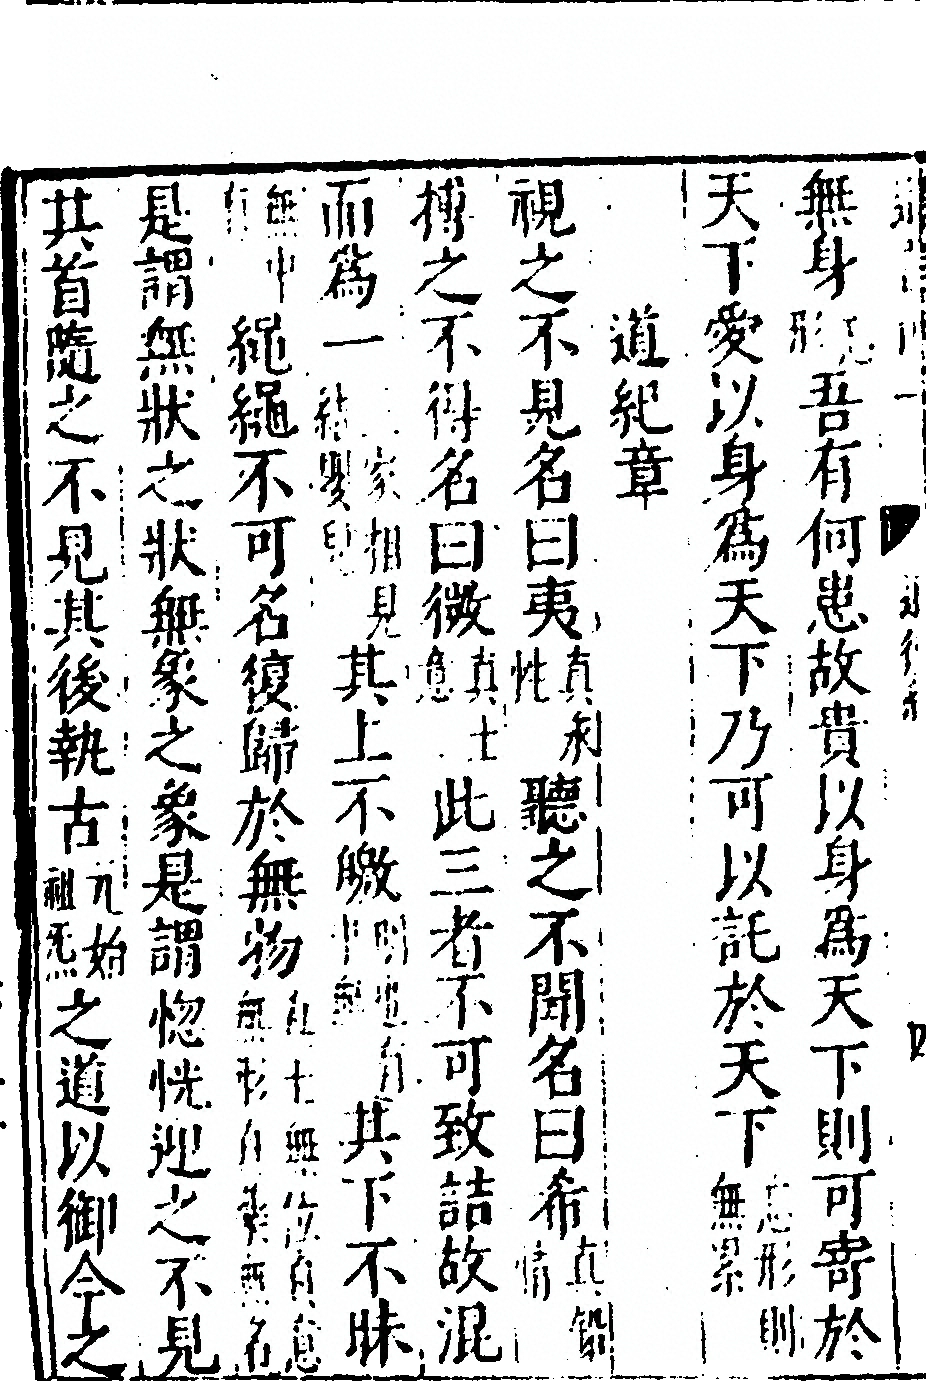 無身忘形吾有何患故貴以身為天下則可寄於
天下愛以身為天下乃可以託於天下忘形則無累
道紀章
視之不見名曰夷真汞性聽之不聞名曰希真鉛情
摶之不得名曰微真土意此三者不可致詰故混
而為一家相見結嬰兒其上不皦明也有中無其下不昧
無中有繩繩不可名復歸於無物真土無位真意無形自然無名
是謂無狀之狀無象之象是謂惚恍迎之不見
其首隨之不見其後執古元始祖炁之道以御今之